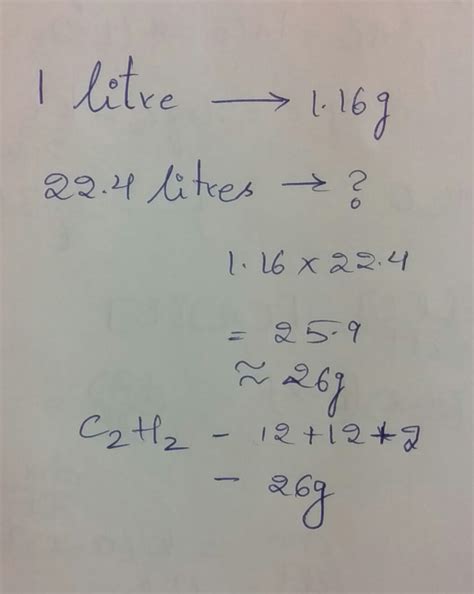 1 litre → 1.16g
22.4 litres → ?
1.16 × 22.4
= 25.9
≈ 26g
C₂H₂ - 12+12+2
- 26g